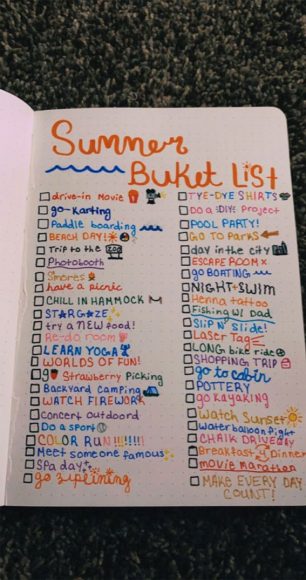 Summer
Buket List
drive-in movie
go-karting
Paddle boarding
BEACH DAY!
Trip to the
Photobooth
Smores
have a picnic
CHILL IN HAMMOCK
STARGAZE
try a NEW food!
Re-do room
LEARN YOGA
WORLDS OF FUN!
go Strawberry Picking
Backyard Camping
WATCH FIREWORK
Concert outdoord
Do a SPORT
COLOR RUN!!!!!!
Meet someone famous
Spa day
go ziplining
TYE-DYE SHIRTS
Do a DIY Project
POOL PARTY!
GO TO PARKS
day in the city
ESCAPE ROOM
go BOATING
NIGHT SWIM
Henna tattoo
Fishing w/ Dad
SLIP N' Slide!
Laser Tag
LONG bike ride
SHOPPING TRIP
go to cabin
POTTERY
go Kayaking
Watch Sunset
Water balloon fight
CHALK DRIVEWAY
Breakfast 4 Dinner
movie marathon
MAKE EVERY DAY
COUNT!